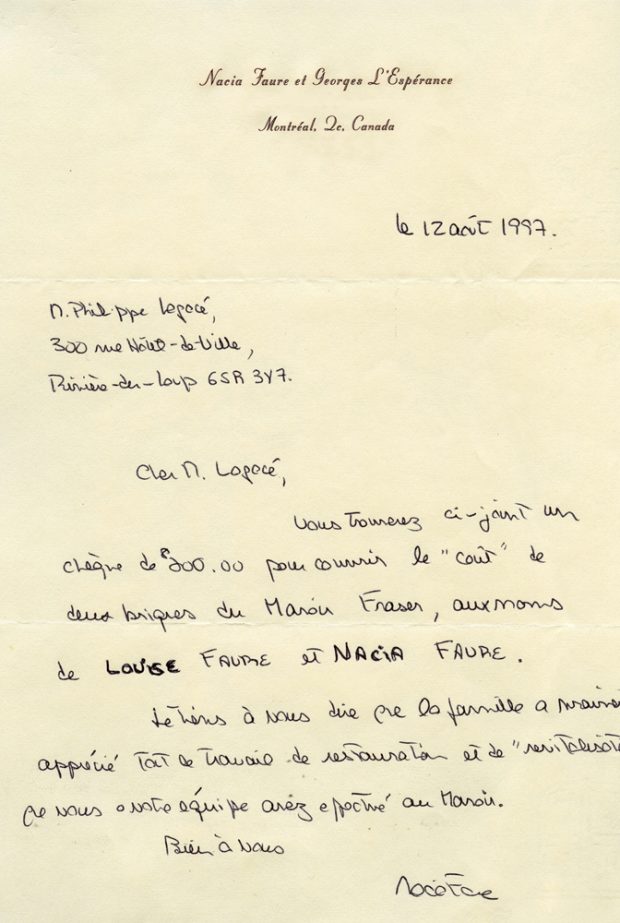 Nacia Faure et Georges L'Espérance
Montréal, Qc. Canada
le 12 août 1997.
M. Philippe Lagacé,
300 rue Hôtel-de-Ville,
Rivière-du-Loup G5R 3Y7.
Cher M. Lagacé,
Vous trouverez ci-joint un
chèque de $200.00 pour couvrir le "coût" de
deux briques du Manoir Fraser, aux noms
de LOUISE FAURE et NACIA FAURE.
Je tiens à vous dire que la famille a vraiment
apprécié tout le travail de restauration et de "revitalisat
que vous et votre équipe avez effectué au Manoir.
Bien à vous